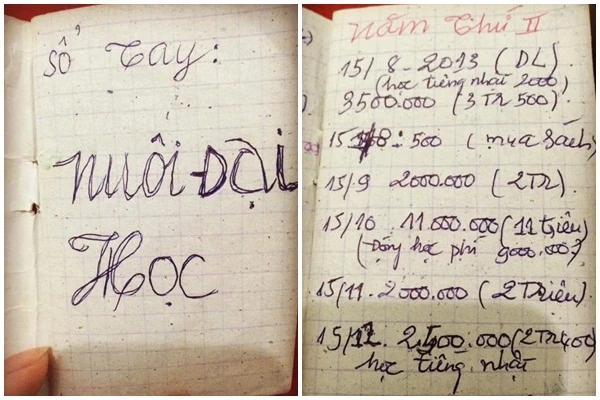 sổ Tay:
nuôi ĐẠI
HỌC
Năm Thứ II
15/8-2013 (DL)
(học tiếng nhật 2000)
3500.000 (3TR 500).
15 8: 500 (mua Sách)
15/9 2000.000 (2TR).
15/10 11.000.000 (11 triệu)
(Đóng học phí 9000.000)
15/11. 2000.000 (2Triệu).
15/12. 2400.000 (2TR400)
học tiếng nhật